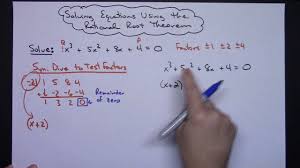 Solving Equations Using the
Rational Root Theorem
Solve: x³ + 5x² + 8x + 4 = 0 Factors ±1 ±2 ±4
Syn. Div to Test Factors
-2| 1 5 8 4
↓ -2 -6 -4
1 3 2 0
Remainder
of zero
(x+2)
x³ + 5x² + 8x + 4 = 0
(x+2)